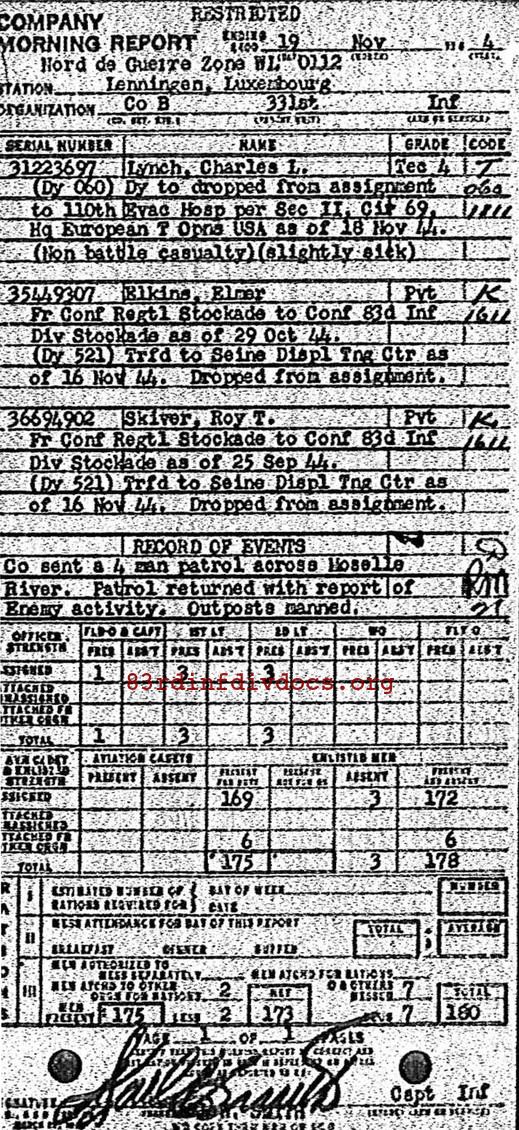 RESTRICTED
COMPANY
MORNING REPORT ENDING 2400 19 Nov 4
Nord de Guerre Zone WL 0112
STATION Lenningen, Luxembourg
ORGANIZATION Co B 331st Inf
SERIAL NUMBER NAME GRADE CODE
31223697 Lynch, Charles L. Tec 4 T
(Dy 060) Dy to dropped from assignment 060
to 110th Evac Hosp per Sec II, Cir 69, 1811
Hq European T Opns USA as of 18 Nov 44.
(Non battle casualty)(slightly sick)
35449307 Elkins, Elmer Pvt K
Fr Conf Regtl Stockade to Conf 83d Inf 1611
Div Stockade as of 29 Oct 44.
(Dy 521) Trfd to Seine Displ Tng Ctr as
of 16 Nov 44. Dropped from assignment.
36694902 Skiver, Roy T. Pvt K
Fr Conf Regtl Stockade to Conf 83d Inf 1611
Div Stockade as of 25 Sep 44.
(Dy 521) Trfd to Seine Displ Tng Ctr as
of 16 Nov 44. Dropped from assignment.
RECORD OF EVENTS
Co sent a 4 man patrol across Moselle
River. Patrol returned with report of
Enemy activity. Outposts manned.
OFFICER STRENGTH FLD O & CAPT 1ST LT 2D LT WO FLT O
PRES ABS'T PRES ABS'T PRES ABS'T PRES ABS'T PRES ABS'T
SSIGNED 1 3 3
83rdinfdivdocs.org
TTACHED UNASSIGNED
TTACHED FR OTHER ORGN
TOTAL 1 3 3
AVN CADET & ENLISTED STRENGTH AVIATION CADETS ENLISTED MEN
PRESENT ABSENT PRESENT FOR DUTY PRESENT NOT FOR DY ABSENT PRESENT AND ABSENT
SSIGNED 169 3 172
TTACHED UNASSIGNED
TTACHED FR OTHER ORGN 6 6
TOTAL 175 3 178
I ESTIMATED NUMBER OF RATIONS REQUIRED FOR DAY OF WEEK DATE NUMBER
II MESS ATTENDANCE FOR DAY OF THIS REPORT TOTAL AVERAGE
BREAKFAST DINNER SUPPER
MEN AUTHORIZED TO MESS SEPARATELY MEN ATCHD FOR RATIONS
III MEN ATCHD TO OTHER ORGN FOR RATIONS 2 NET O & OTHERS MESSED 7 TOTAL
MEN PRESENT 175 LESS 2 173 PLUS 7 180
PAGE 1 OF 1 PAGES
SIGNATURE
Capt Inf